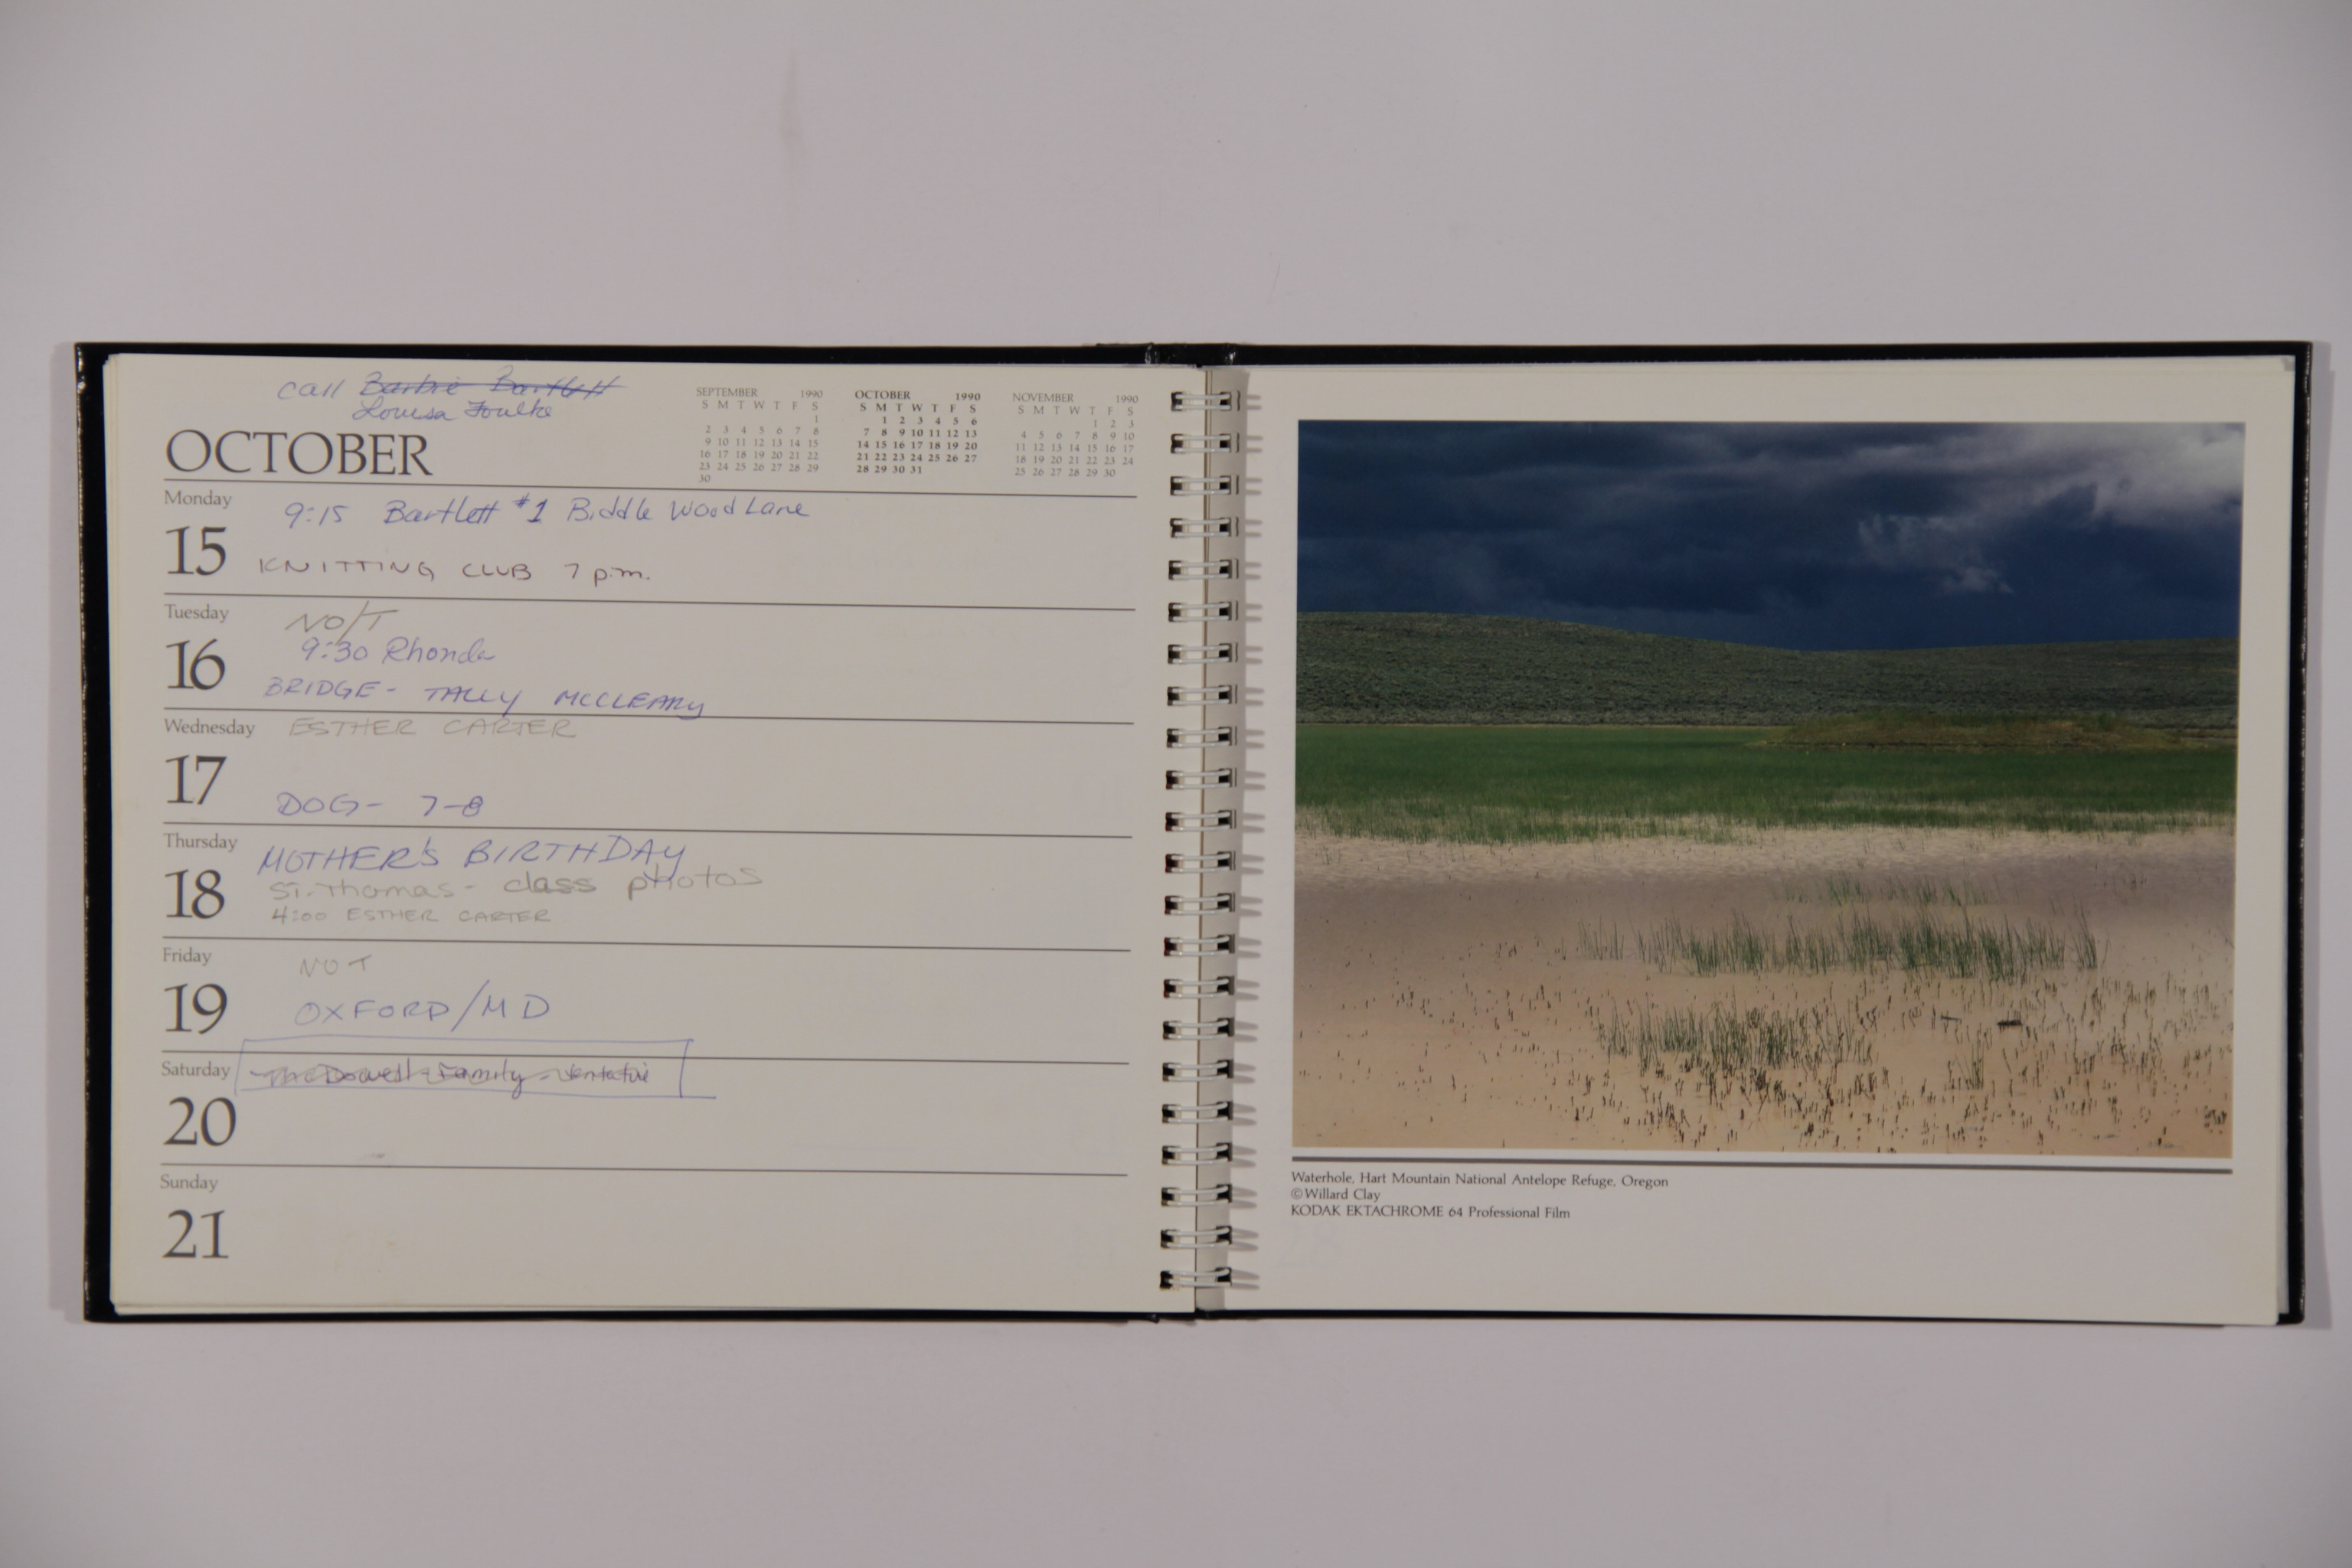 call Barbie Bartlett
Louisa Foulke
OCTOBER
SEPTEMBER 1990
S M T W T F S
1
2 3 4 5 6 7 8
9 10 11 12 13 14 15
16 17 18 19 20 21 22
23 24 25 26 27 28 29
30
OCTOBER 1990
S M T W T F S
1 2 3 4 5 6
7 8 9 10 11 12 13
14 15 16 17 18 19 20
21 22 23 24 25 26 27
28 29 30 31
NOVEMBER 1990
S M T W T F S
1 2 3
4 5 6 7 8 9 10
11 12 13 14 15 16 17
18 19 20 21 22 23 24
25 26 27 28 29 30
Monday
15
9:15 Bartlett #1 Biddle Wood Lane
KNITTING CLUB 7 p.m.
Tuesday
16
NO/T
9:30 Rhonda
BRIDGE - TALLY MCCLEARY
Wednesday
17
ESTHER CARTER
DOG - 7-8
Thursday
18
MOTHER'S BIRTHDAY
St. Thomas - class photos
4:00 ESTHER CARTER
Friday
19
NOT
OXFORD/MD
Saturday
20
McDowell Family - tentative
Sunday
21
Waterhole, Hart Mountain National Antelope Refuge, Oregon
©Willard Clay
KODAK EKTACHROME 64 Professional Film